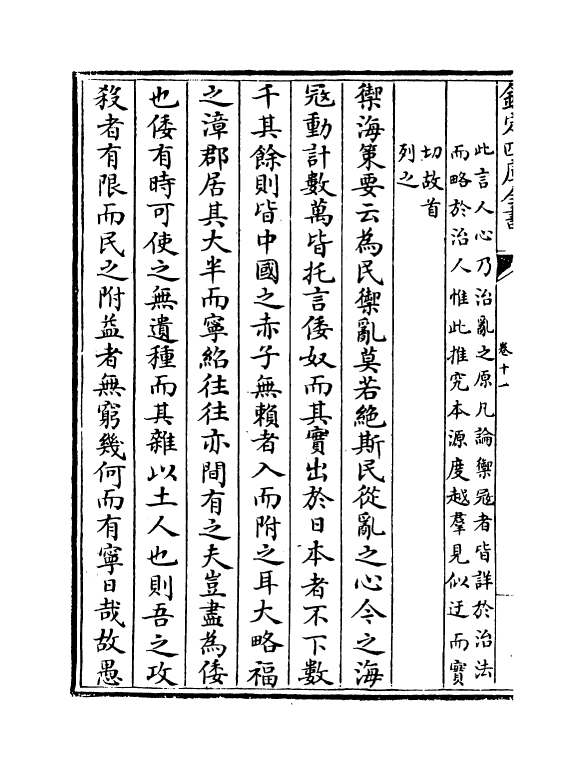 欽定四庫全書
卷十一
此言人心乃治亂之原凡論禦寇者皆詳於治法
而略於治人惟此推究本源度越羣見似迂而實
切故首
列之
禦海策要云為民禦亂莫若絶斯民從亂之心今之海
宼動計數萬皆托言倭奴而其實出於日本者不下數
千其餘則皆中國之赤子無賴者入而附之耳大略福
之漳郡居其大半而寧紹往往亦間有之夫豈盡為倭
也倭有時可使之無遺種而其雜以土人也則吾之攻
殺者有限而民之附益者無窮幾何而有寧日哉故愚